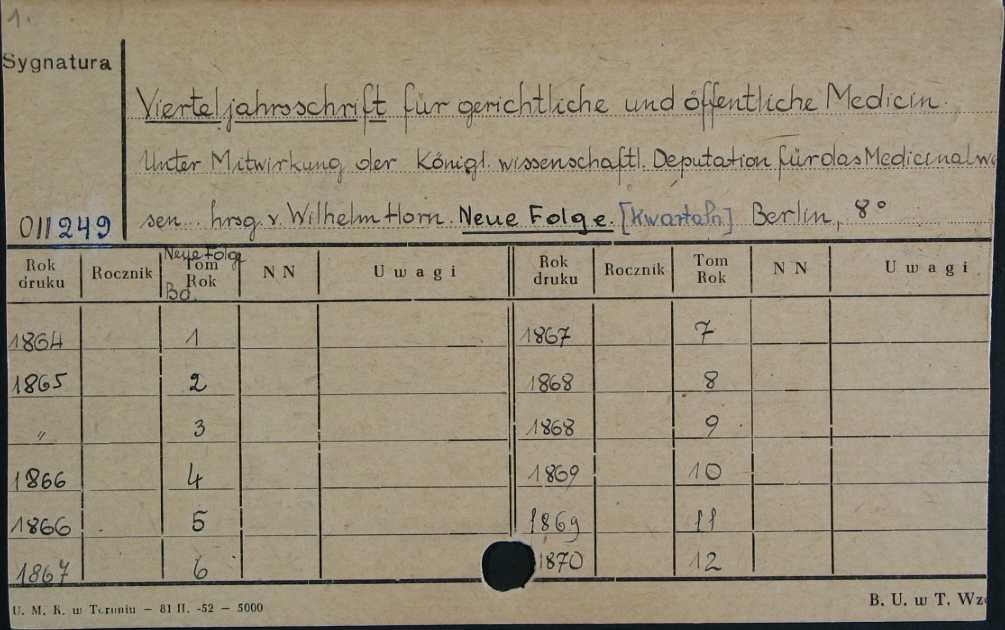 1.
Sygnatura
Vierteljahrsschrift für gerichtliche und öffentliche Medicin.
Unter Mitwirkung der Königl. wissenschaftl. Deputation für das Medicinalwe
011249 sen hrsg. v. Wilhelm Horn. Neue Folge. [Kwartaln] Berlin, 8°
Rok druku Rocznik Neue Folge Bd. Tom Rok N N Uwagi Rok druku Rocznik Tom Rok N N Uwagi
1864 1 1867 7
1865 2 1868 8
" 3 1868 9
1866 4 1869 10
1866 5 1869 11
1867 6 1870 12
U. M. K. w Toruniu — 81 II. -52 — 5000 B. U. w T. Wzó